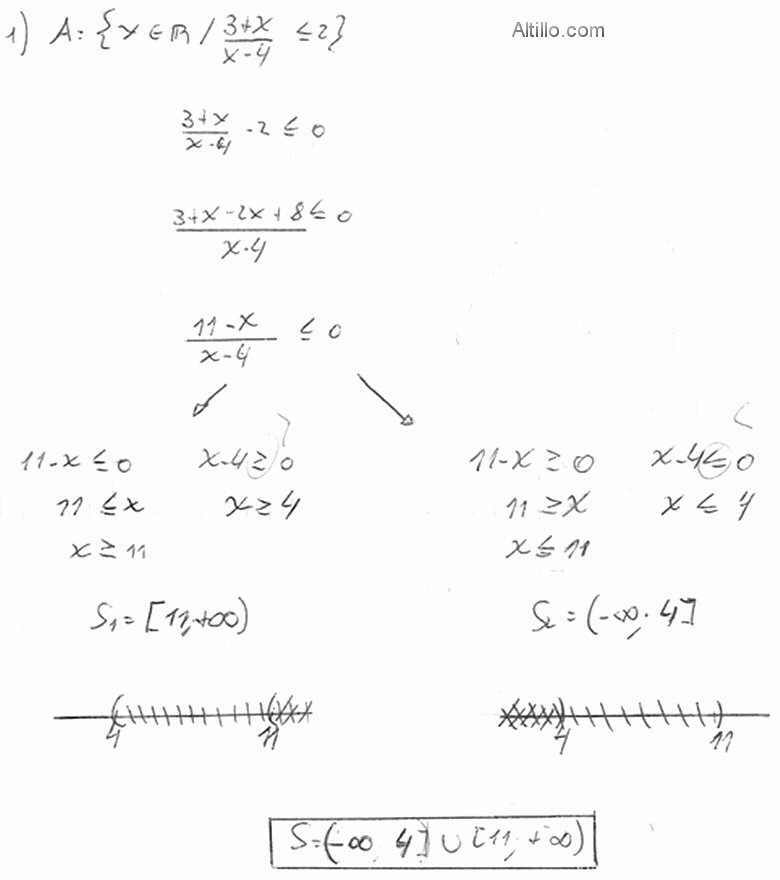 1) A = {x ∈ ℝ / (3+x)/(x-4) ≤ 2}
Altillo.com
(3+x)/(x-4) - 2 ≤ 0
(3+x-2x+8)/(x-4) ≤ 0
(11-x)/(x-4) ≤ 0
11-x ≤ 0 x-4 ≥ 0 >
11 ≤ x x ≥ 4
x ≥ 11
S1 = [11,+∞)
4 11
11-x ≥ 0 x-4 ≤ 0 <
11 ≥ x x ≤ 4
x ≤ 11
S2 = (-∞, 4]
4 11
S = (-∞ 4] ∪ [11, +∞)